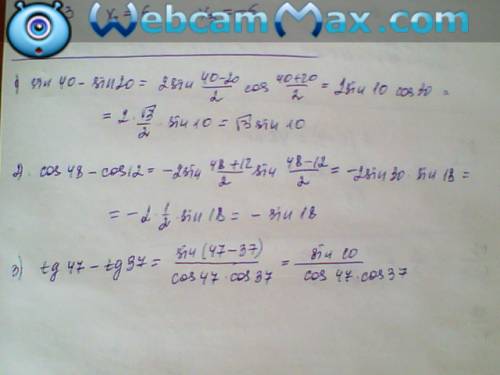 WebcamMax.com
1) sin 40 - sin 20 = 2 sin (40-20)/2 cos (40+20)/2 = 2 sin 10 cos 30 =
= 2 · √3/2 · sin 10 = √3 sin 10
2) cos 48 - cos 12 = -2 sin (48+12)/2 sin (48-12)/2 = -2 sin 30 · sin 18 =
= -2 · 1/2 · sin 18 = - sin 18
3) tg 47 - tg 37 = sin (47-37)/(cos 47 · cos 37) = sin 10/(cos 47 · cos 37)